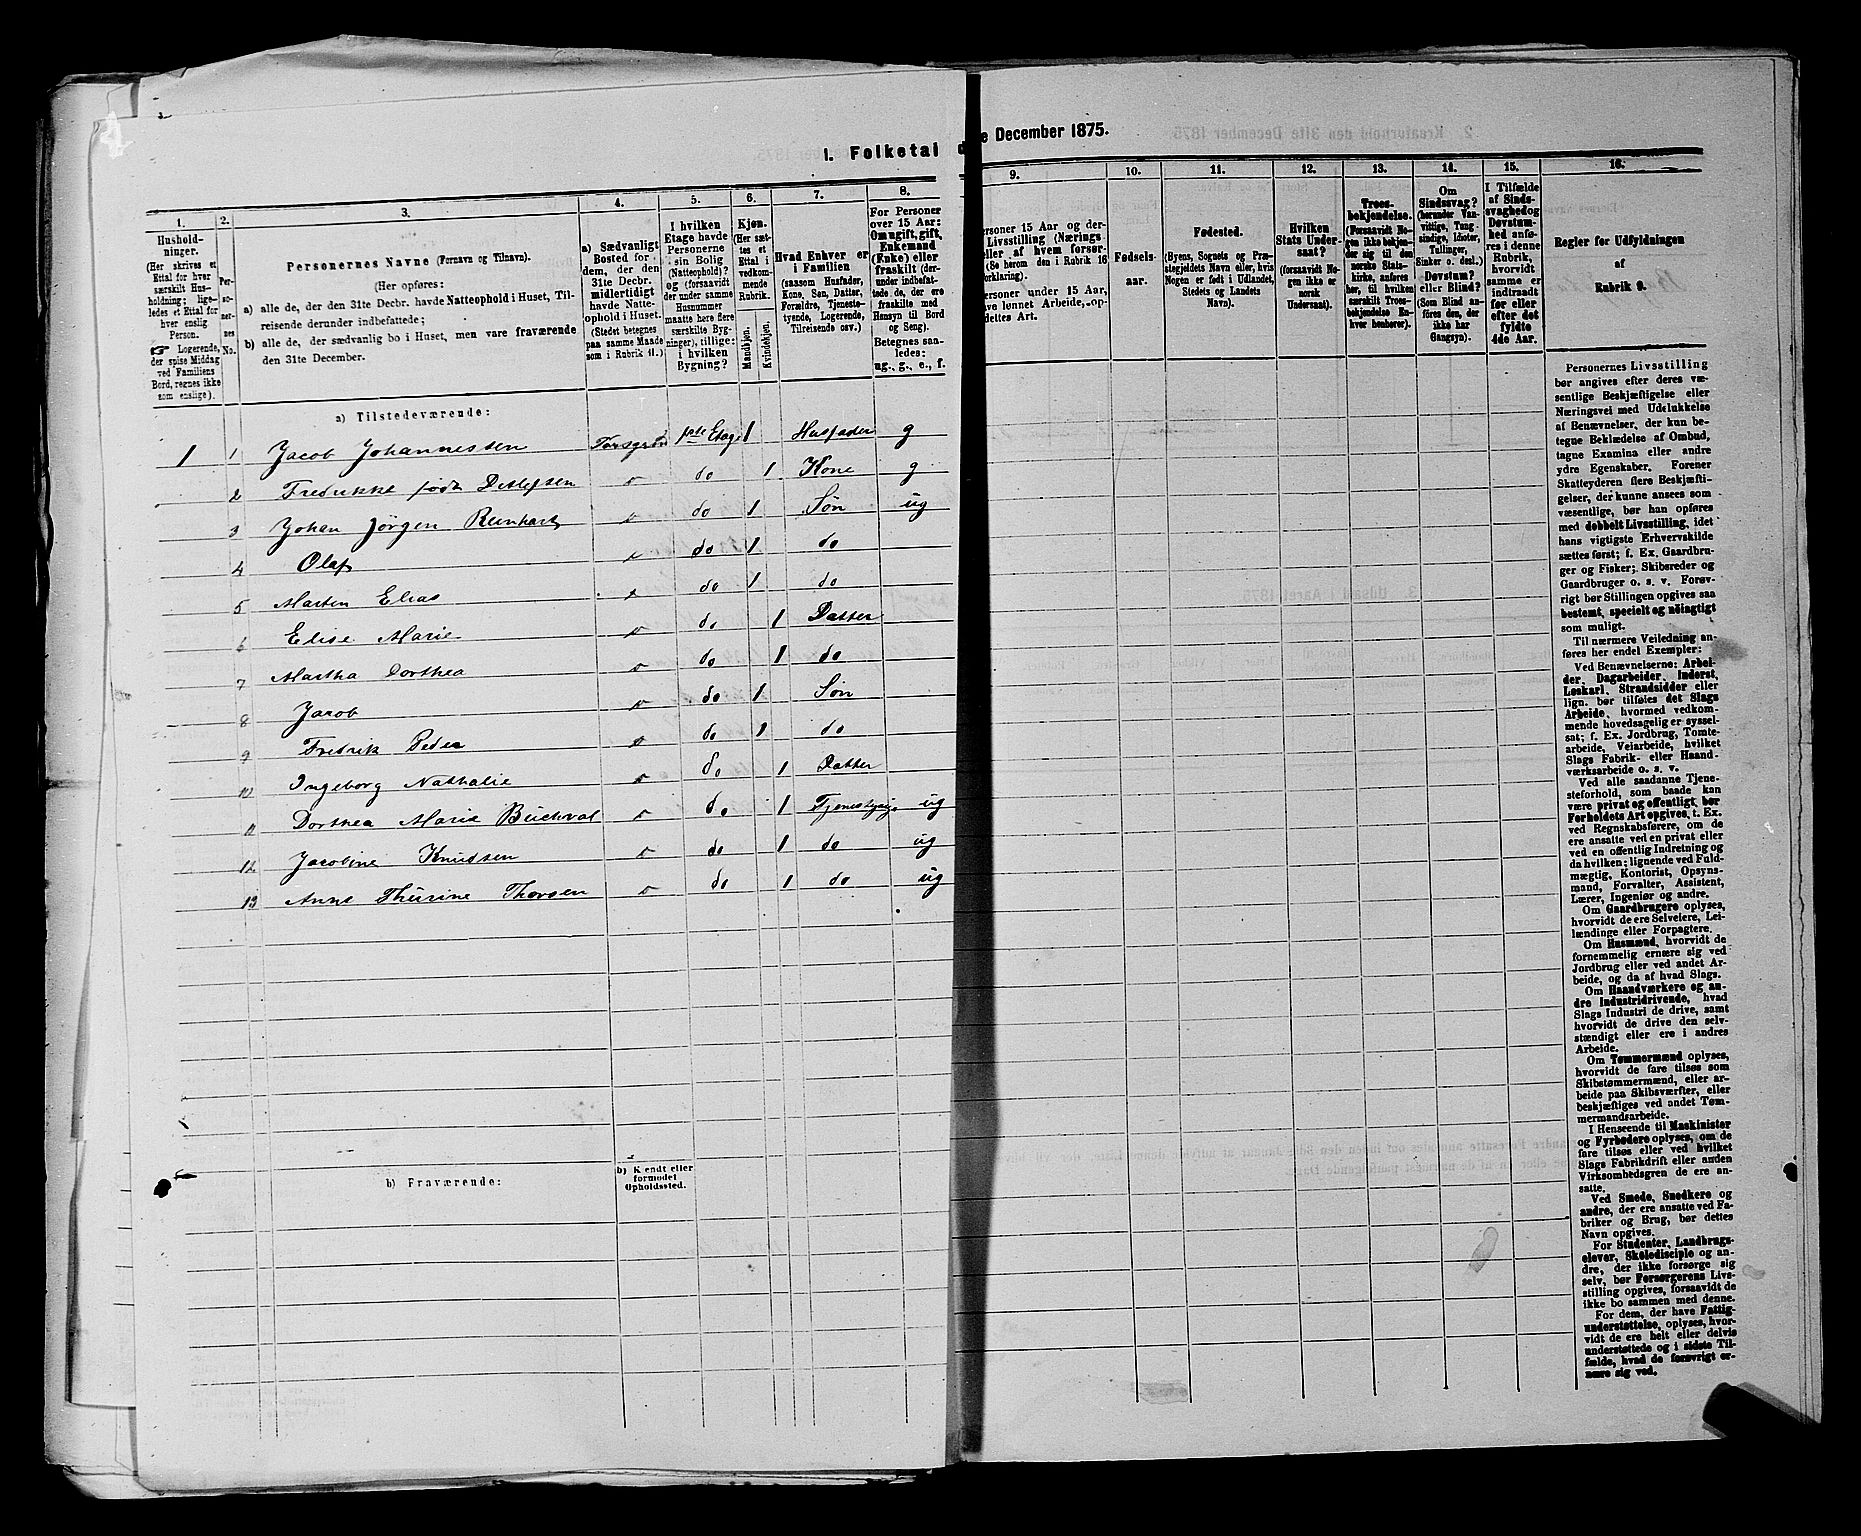 1. Folketal d
e December 1875.
1.
2.
3.
4.
5.
6.
7.
8.
9.
10.
11.
12.
13.
14.
15.
16.
Husholdninger.
(Her skrives et
Ettal for hver
særskilt Husholdning; ligeledes et Ettal for
hver enslig
Person.
☞ Logerende,
der spise Middag
ved Familiens
Bord, regnes ikke
som enslige).
Personernes No.
Personernes Navne (Fornavn og Tilnavn).
(Her opføres:
a) alle de, der den 31te Decbr. havde Natteophold i Huset, Tilreisende derunder indbefattede;
b) alle de, der sædvanlig bo i Huset, men vare fraværende
den 31te December.
a) Sædvanligt
Bosted for
dem, der den
31te Decbr.
midlertidigt
havde Natteophold i Huset.
(Stedet betegnes
paa samme Maade
som i Rubrik 11.)
I hvilken
Etage havde
Personerne
sin Bolig
(Natteophold)?
og (forsaavidt
der under samme
Husnummer
maatte høre flere
særskilte Bygninger), tillige:
i hvilken
Bygning?
Kjøn.
(Her sættes et
Ettal i
vedkommende
Rubrik.)
Mandkjøn.
Kvindekjøn.
Hvad Enhver er
i Familien
(saasom Husfader,
Kone, Søn, Datter,
Forældre, Tjenestetyende, Logerende,
Tilreisende osv.)
For Personer
over 15 Aar:
Om ugift, gift,
Enkemand
(Enke) eller
fraskilt (derunder indbefattede de, der ere
fraskilte med
Hensyn til Bord
og Seng).
Betegnes saaledes:
ug., g., e., f.
ersoner 15 Aar og der-
Livsstilling (Nærings-
eller af hvem forsør-
(Se herom den i Rubrik 16
orklaring).
ersoner under 15 Aar,
ve lønnet Arbeide, op-
dettes Art.
Fødselsaar.
Fødested.
(Byens, Sognets og Præstegjeldets Navn eller, hvis
Nogen er født i Udlandet,
Stedets og Landets
Navn).
Hvilken
Stats Undersaat?
(forsaavidt Nogen ikke er
norsk
Undersaat).
Troesbekjendelse.
(Forsaavidt Nogen ikke bekjender sig til den
norske Statskirke, anføres
her, til hvilket
særskilt Troesbekjendelse Enhver henhører).
Om
Sindssvag?
(herunder Vanvittige, Tungsindige, Idioter,
Tullinger,
Sinker o. desl.)
Døvstum?
eller Blind?
(Som Blind anføres den, der
ikke har
Gangsyn).
I Tilfælde
af Sindssvaghed og
Døvstumhed anføres i denne
Rubrik,
hvorvidt
samme er
indtraadt
før eller
efter det
fyldte
4de Aar.
Regler for Udfyldningen
af
Rubrik 9.
a) Tilstedeværende:
1 1 Jacob Johannessen 1ste Etage 1 Husfader g
2 Fredrikke født Detlefsen do 1 Kone g
3 Johan Jörgen Reinhart do 1 Søn ug
4 Olaf do 1 do
5 Marten Elias do 1 do
6 Elise Marie do 1 Datter
7 Martha Dorthea do 1 do
8 Jacob do 1 Søn
9 Fredrik Peder do 1 do
10 Ingeborg Nathalie do 1 Datter
11 Dorthea Marie do 1 ug
12 Jacobine Knudsen do 1 do ug
13 Anne Thurine Thorsen do 1 do ug
b) Fraværende:
b) Kjendt eller
formodet
Opholdssted.
Personernes Livsstilling
bør angives efter deres væsentlige Beskjæftigelse eller
Næringsvei med Udelukkelse
af Benævnelser, der kun betegne Beklædelse af Ombud,
tagne Examina eller andre
ydre Egenskaber. Forener
Skatteyderen flere Beskjæftigelser, der kunne ansees som
væsentlige, bør han opføres
med dobbelt Livsstilling, idet
hans vigtigste Erhvervskilde
sættes først; f. Ex. Gaardbruger og Fisker; Skibsreder og
Gaardbruger o. s. v. Forøvrigt bør Stillingen opgives saa
bestemt, specielt og nöiagtigt
som muligt.
Til nærmere Veiledning anføres her endel Exempler:
Ved Benævnelserne: Arbeider, Dagarbeider, Inderst,
Løskarl, Strandsidder eller
lign. bør tilføies det Slags
Arbeide, hvormed vedkommende hovedsagelig er sysselsat; f. Ex. Jordbrug, Tomtearbeide, Veiarbeide, hvilket
Slags Fabrik- eller Haandværksarbeide o. s. v.
Ved alle saadanne Tjenesteforhold, som baade kan
være privat og offentligt, bør
Forholdets Art opgives, t. Ex.
ved Regnskabsførere, om de
ere ansatte ved en privat eller
ved en offentlig Indretning og
da hvilken; lignende ved Fuldmægtig, Kontorist, Opsynsmand, Forvalter, Assistent,
Lærer, Ingeniør og andre.
Om Gaardbrugere oplyses,
hvorvidt de ere Selveiere, Leilændinge eller Forpagtere.
Om Husmænd, hvorvidt de
fornemmelig ernære sig ved
Jordbrug eller ved andet Arbeide, og da af hvad Slags.
Om Haandværkere og andre Industridrivende, hvad
Slags Industri de drive, samt
hvorvidt de drive den selvstændigt eller ere i andres
Arbeide.
Om Tømmermænd oplyses,
hvorvidt de fare tilsøs som
Skibstømmermænd, eller arbeide paa Skibsværfter, eller
beskjæftiges ved andet Tømmermandsarbeide.
I Henseende til Maskinister
og Fyrbødere oplyses, om de
fare tilsøs eller ved hvilket
Slags Fabrikdrift eller anden
Virksomhedsgren de ere ansatte.
Ved Smede, Snedkere og
andre, der ere ansatte ved Fabriker og Brug, bør dettes
Navn opgives.
For Studenter, Landbrugselever, Skoledisciple og andre, der ikke forsørge sig
selv, bør Forsørgerens Livsstilling opgives, forsaavidt de
ikke bo sammen med denne.
For dem, der have Fattigunderstøttelse, oplyses, hvorvidt de ere helt eller delvis
understøttede og i sidste Tilfælde, hvad de forøvrigt ernære sig ved.